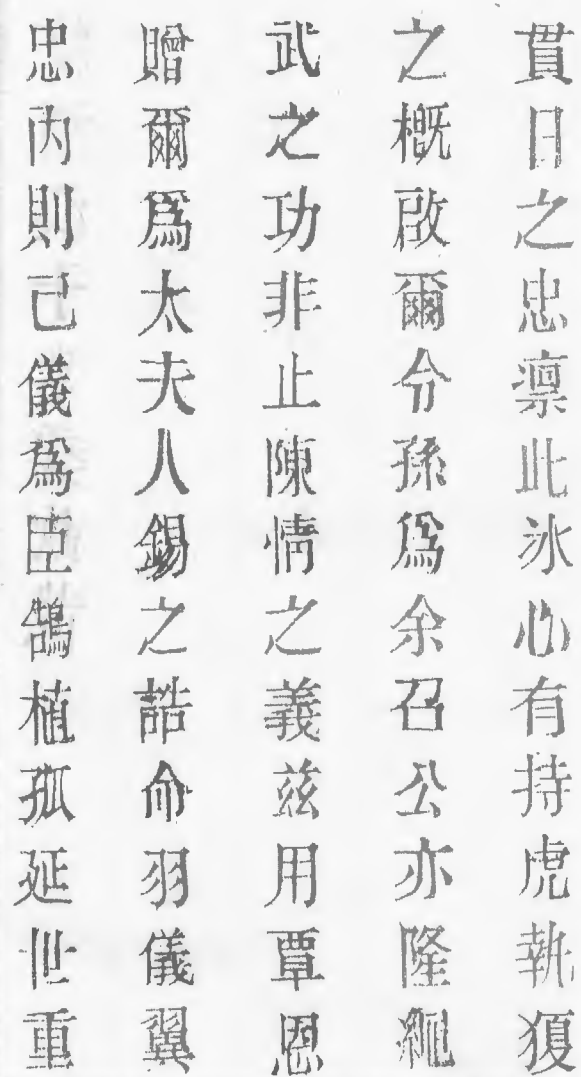 貫日之忠凛此氷心有持虎執獶
之概啟爾令孫爲余召公亦隆繩
武之功非止陳情之義兹用覃恩
贈爾爲太夫人錫之誥命羽儀翼
忠内則已儀爲臣鵠植孤延世重